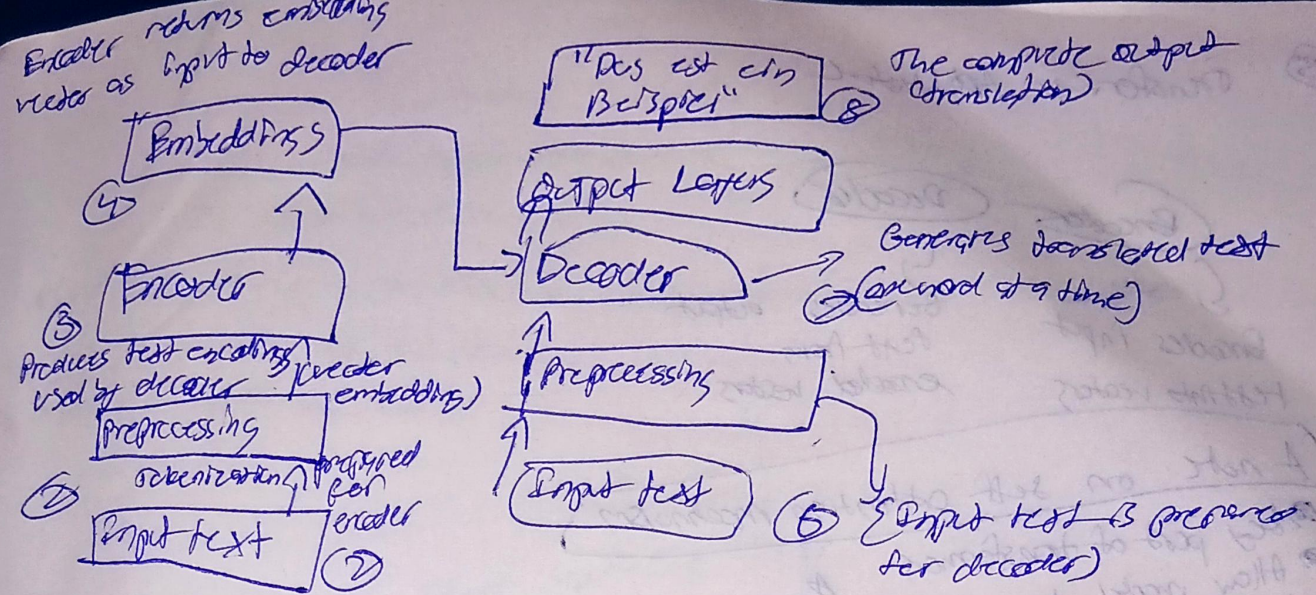 Encoder returns embedding
vector as input to decoder
Embeddings
4
Encoder
3
Produces text encoding (vector
used by decoder embedding)
preprocessing
Tokenization prepared
for
encoder
2
Input text
2
"Das ist ein
Beispiel"
8
The complete output
(translation)
Output Layers
Decoder
Generates translated text
7 (one word at a time)
Preprocessing
Input text
6
(Input text is prepared
for decoder)